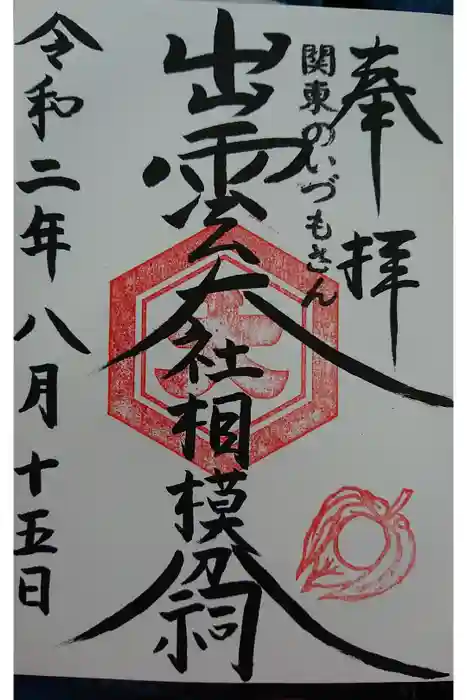 奉拝
関東のいづもさん
出雲大社相模分祠
令和二年八月十五日